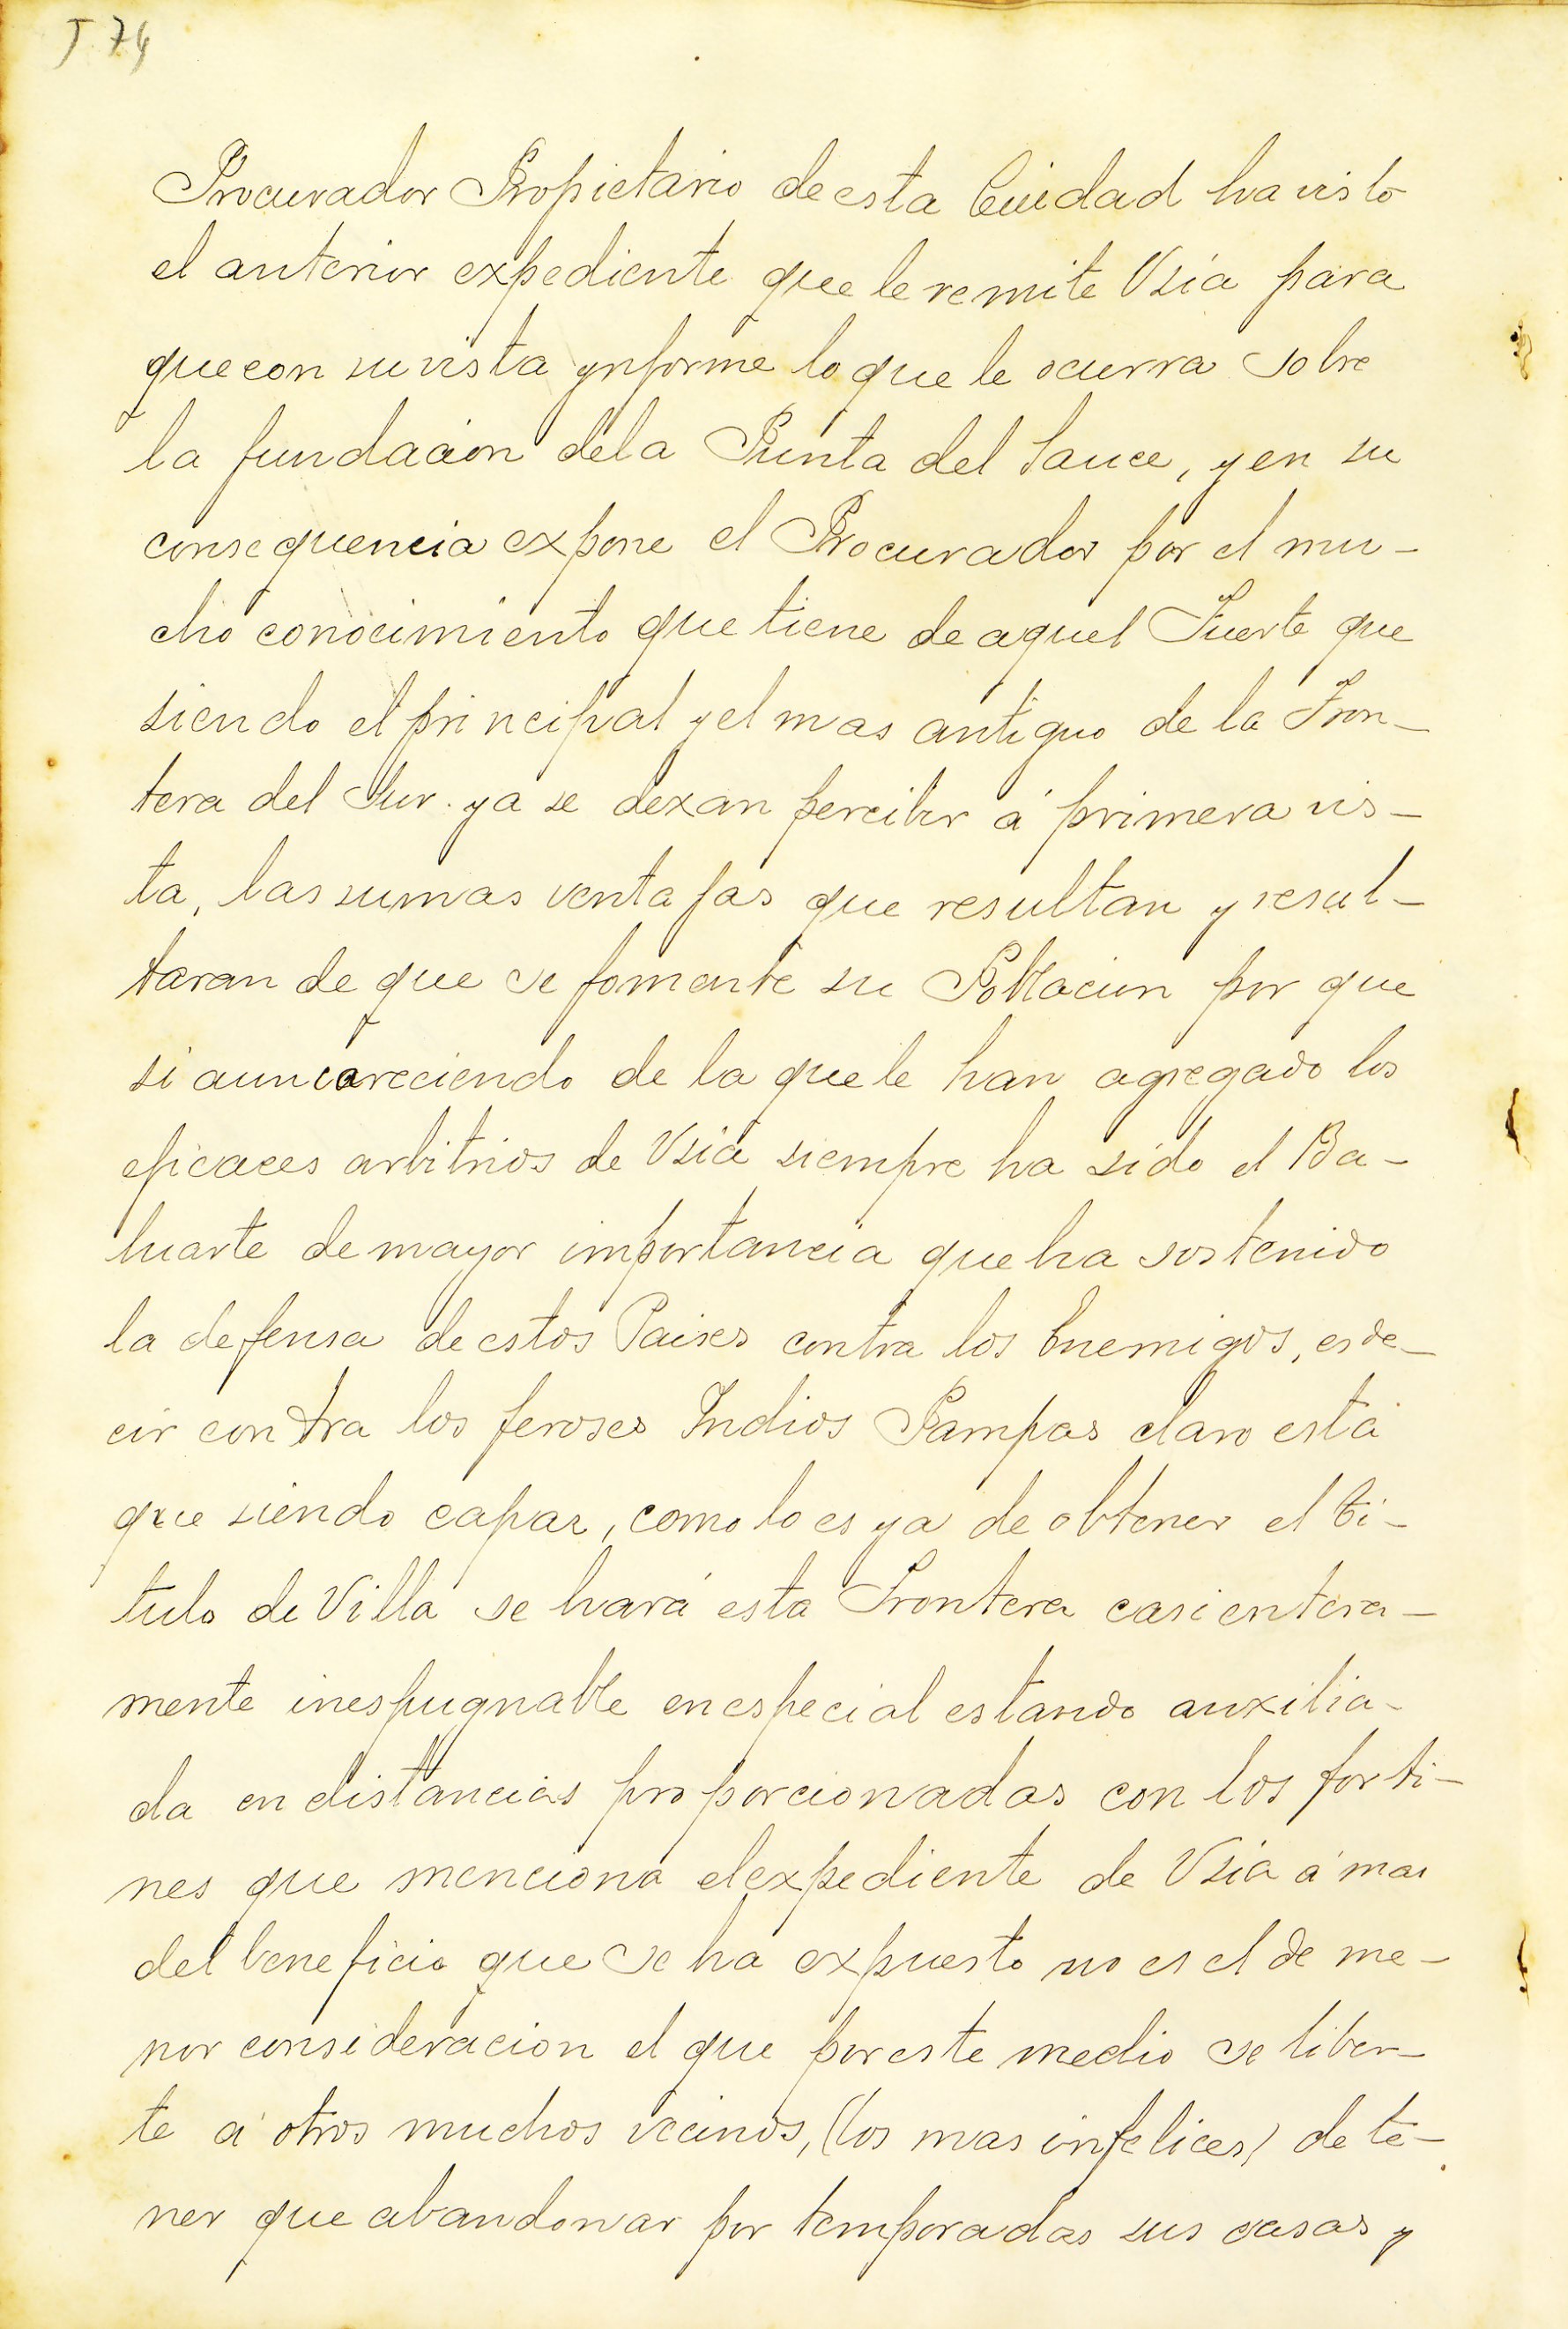 J. 74
Procurador Propietario de esta Ciuidad ha visto
el anterior expediente que le remite Vsia para
que con su vista ynforme lo que le ocurra sobre
la fundacion dela Punta del Sauce, y en su
consequencia expone el Procurador por el mu-
cho conocimiento que tiene de aquel Fuerte que
siendo el principal y el mas antiguo de la Fron-
tera del Sur. ya se dexan percibir á primera vis-
ta, las sumas ventajas que resultan y resul-
taran de que se fomente su Poblacion por que
si aun careciendo de la que le han agregado los
eficaces arbitrios de Vsia siempre ha sido el Ba-
luarte de mayor importancia que ha sostenido
la defensa de estos Paises contra los Enemigos, es de-
cir contra los feroses Indios Pampas claro está
que siendo capaz, como lo es ya de obtener el ti-
tulo de Villa se hará esta Frontera casi entera-
mente inespugnable en especial estando auxilia-
da en distancias proporcionadas con los forti-
nes que menciona el expediente de Vsia á mas
del beneficio que se ha expuesto no es el de me-
nor consideracion el que por este medio se liber-
te á otros muchos vecinos, (los mas infelices) de te-
ner que abandonar por temporadas sus casas y